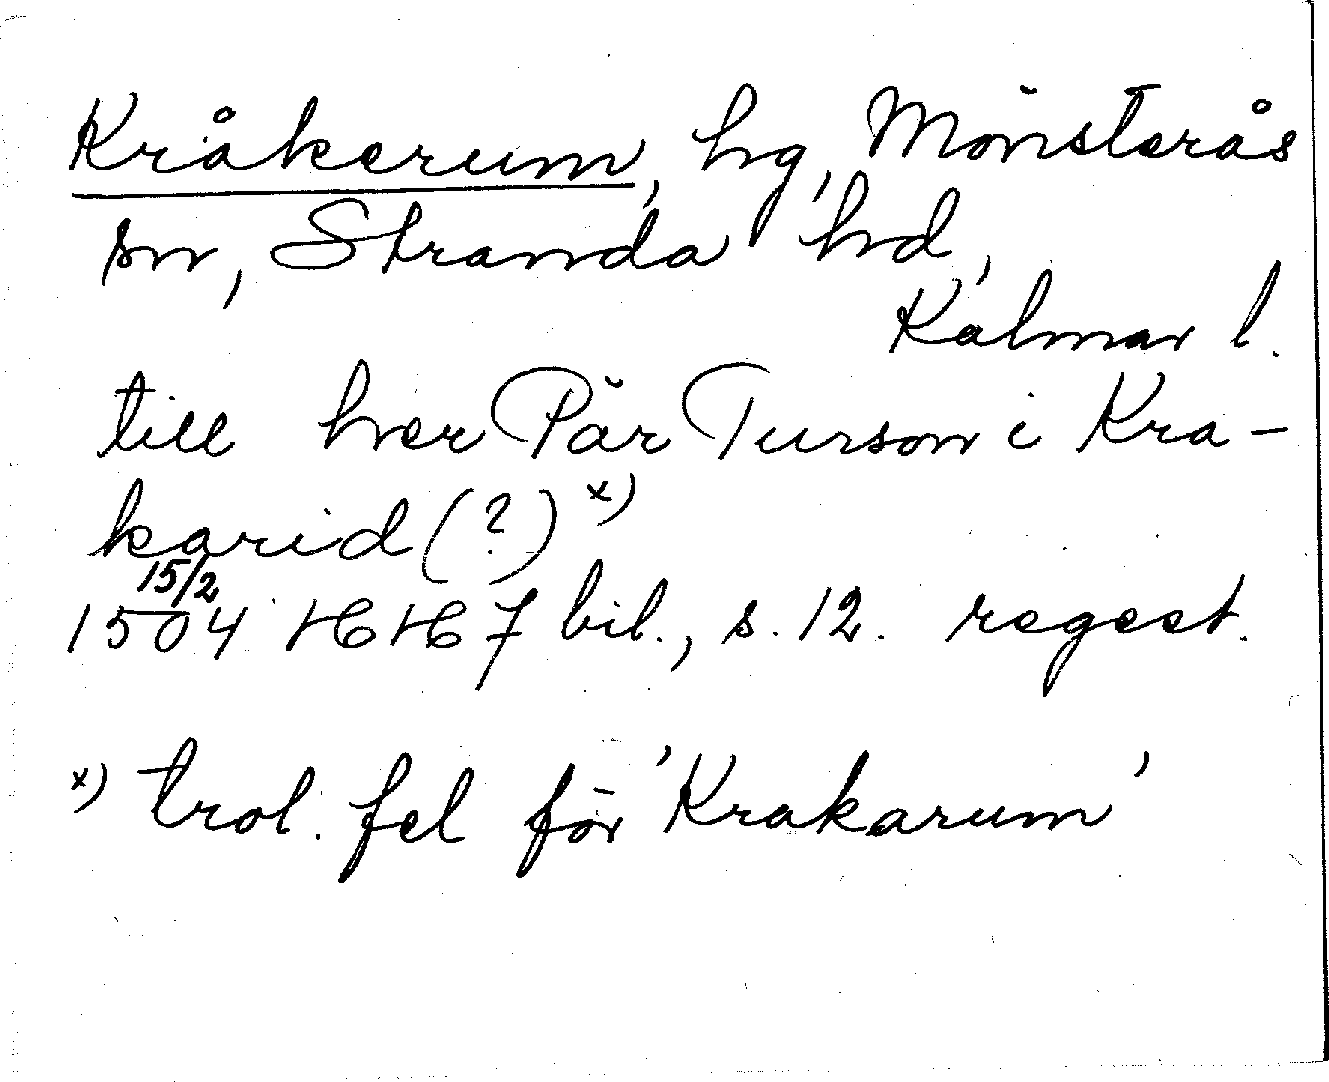 Kråkerum, hg, Mönsterås
sn, Stranda hd,
Kalmar l.
till her Pär Turson i Kra-
karid (?) x)
15/2
1504 HH 7 bil., s. 12. regest.
x) trol. fel för 'Krakarum'